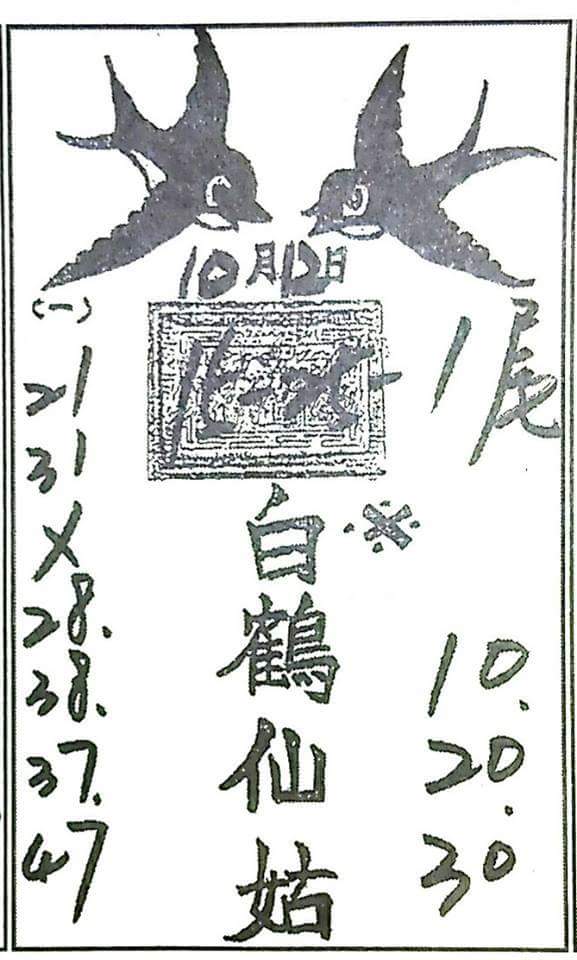 10月12日
(一)
16-25-1尾
21
31
X
28.
38.
37.
47
※
白鶴仙姑
10.
20.
30